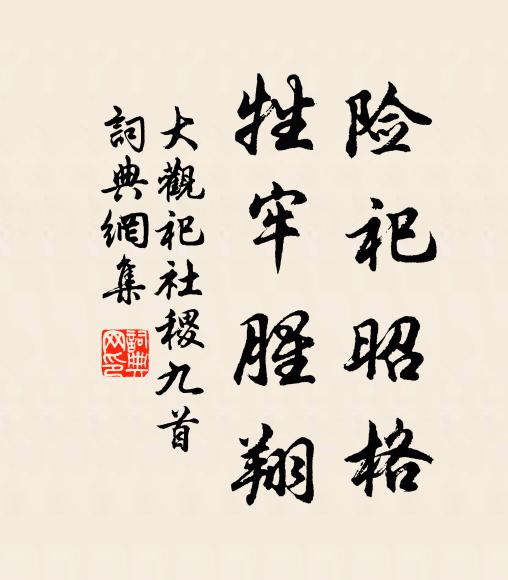 险祀昭格
牲牢腥翔
大觀祀社稷九首
詞典網集
詞典网印